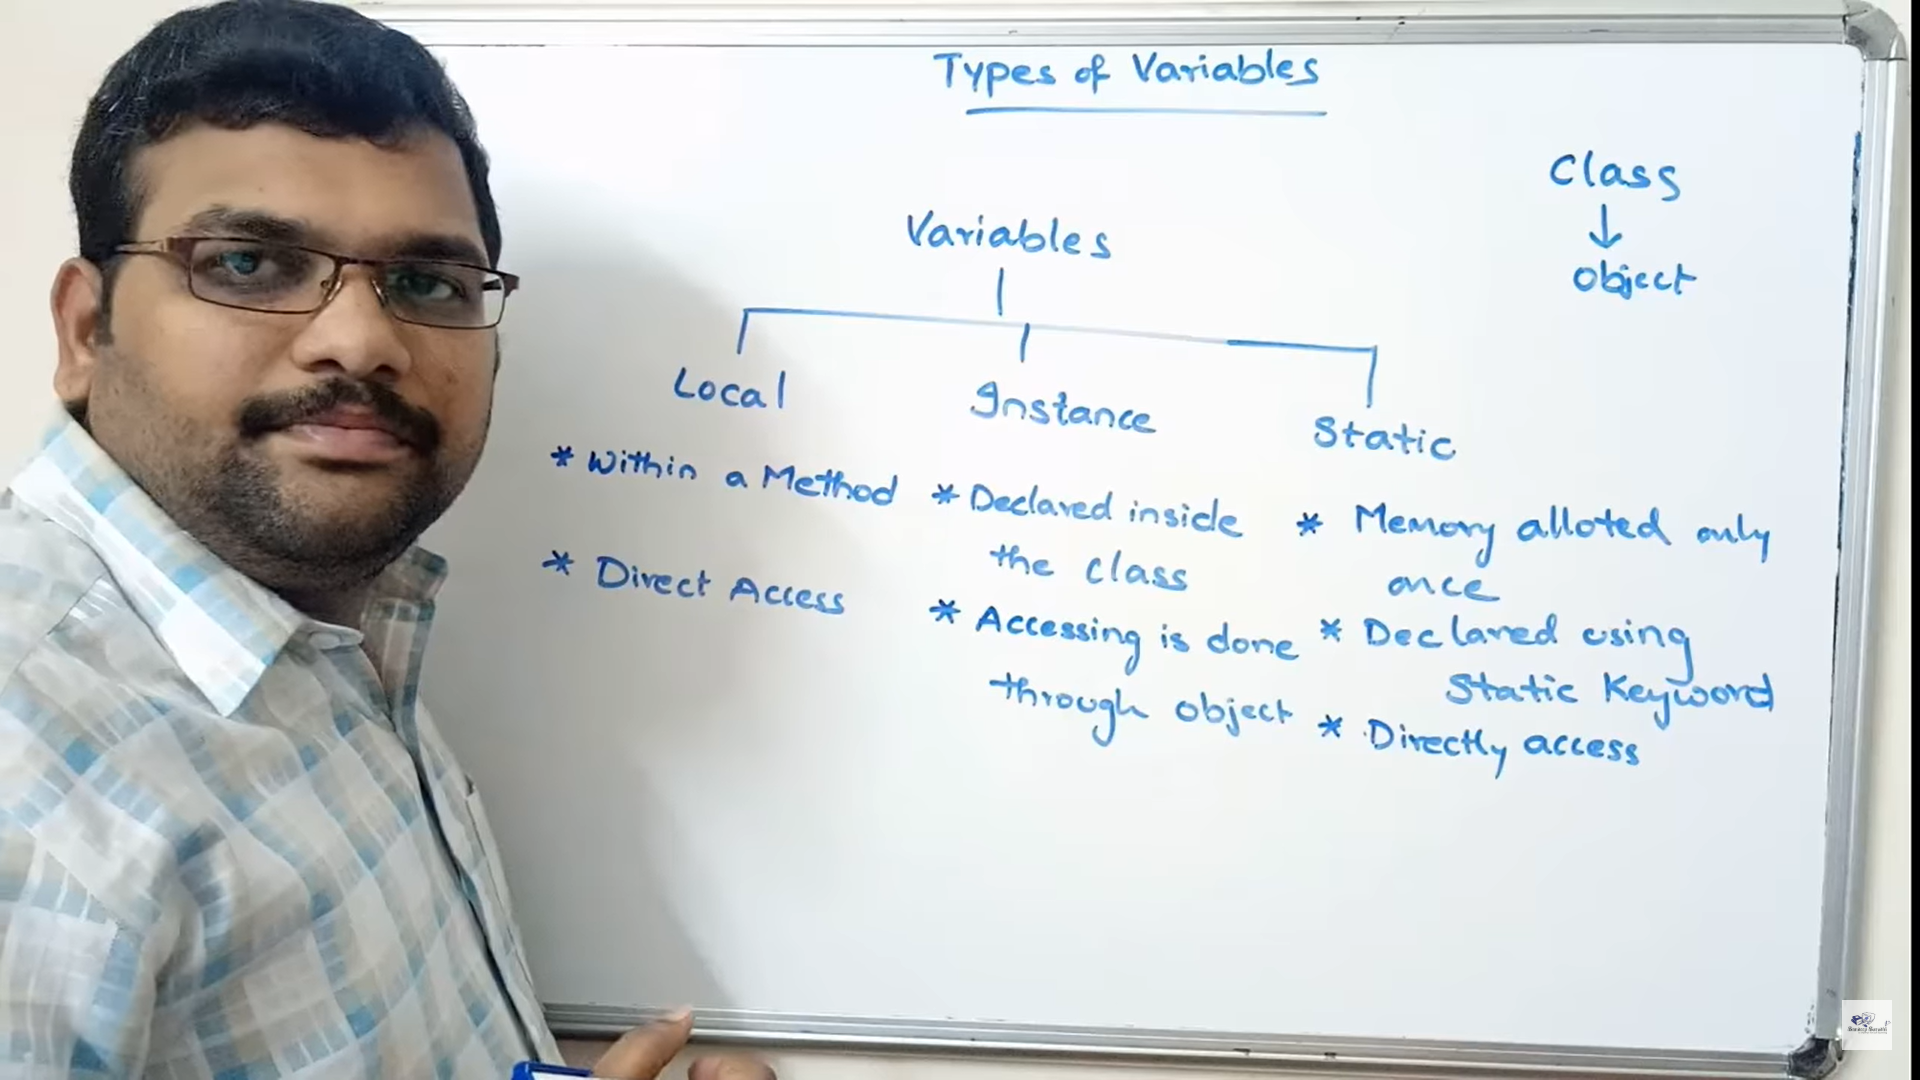 Types of Variables
Class
↓
object
Variables
Local
Instance
Static
* Within a Method
* Direct Access
* Declared inside
the class
* Accessing is done
through object
* Memory alloted only
once
* Declared using
Static Keyword
* Directly access